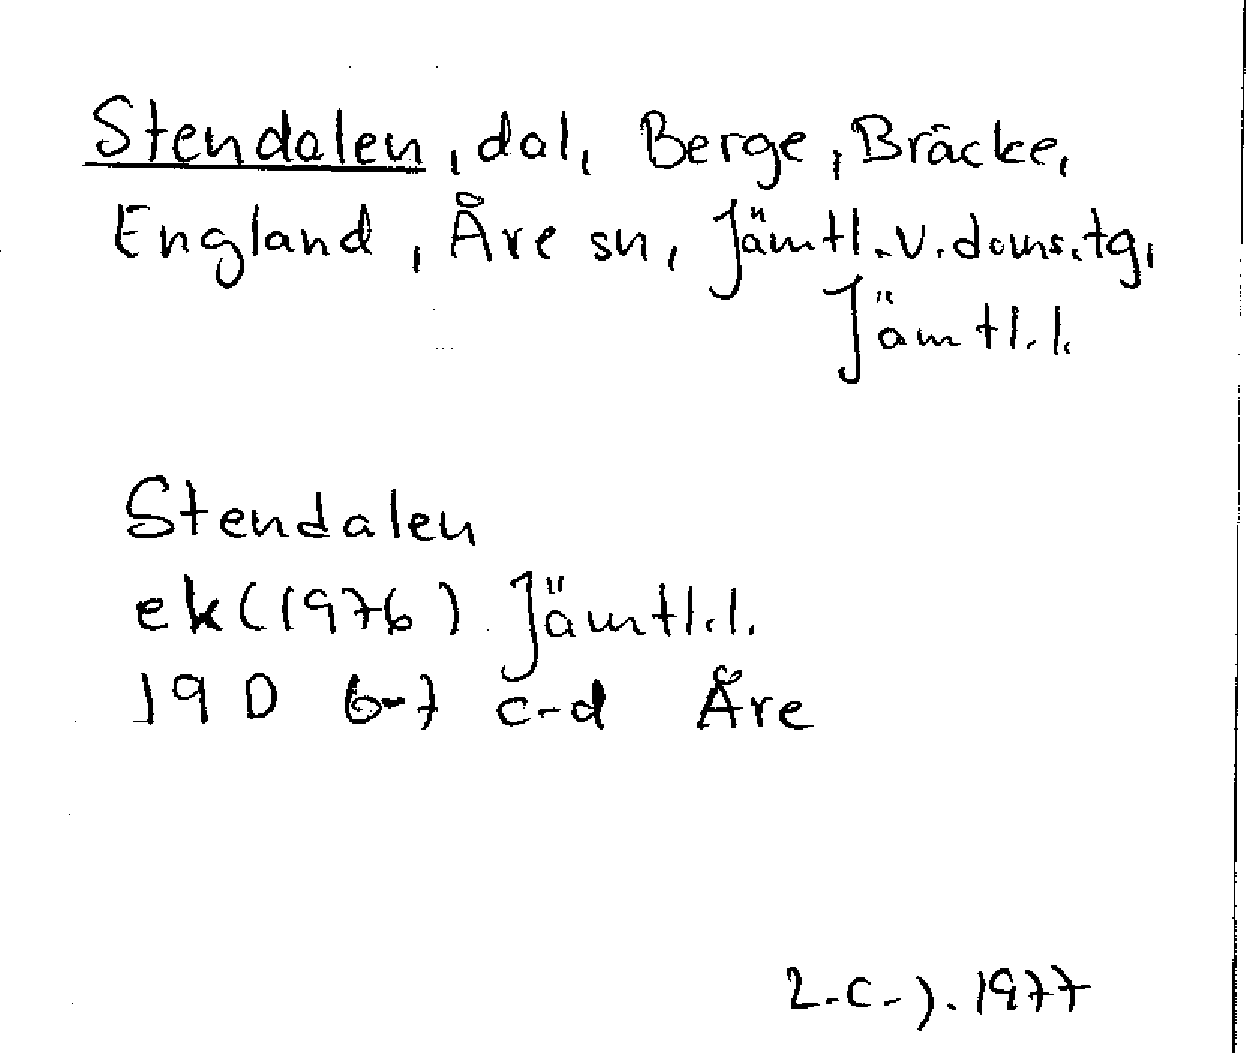 Stendalen, dal, Berge, Bräcke,
England, Åre sn, Jämtl.v.doms.tg,
Jämtl.l.
Stendalen
ek (1976) Jämtl.l.
19 D 6-7 c-d Åre
1977